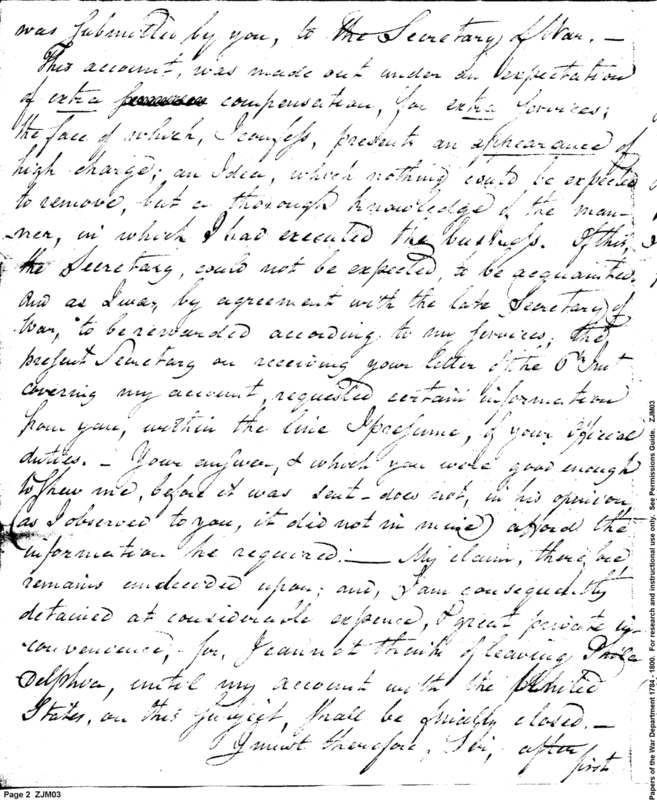 was submitted by you, to the Secretary of War. —
This account, was made out under an expectation
of extra compensation, for extra services;
the face of which, I confess, presents an appearance of
high charge; an Idea, which nothing could be expected
to remove, but a thorough knowledge of the man-
-ner, in which I had executed the business. Of this,
the Secretary, could not be expected, to be acquainted.
And as I was, by agreement with the late Secretary of
War, "to be rewarded according to my services; the
present Secretary on receiving your letter of the 6th Inst
covering my account, requested certain information
from you, within the line I presume, of your Official
duties. — Your answer, & which you were good enough
to shew me, before it was sent - does not, in his opinion
(as I observed to you, it did not in mine) afford the
information he required. — My claim, therefore
remains undecided upon; and, I am consequently
detained at considerable expence, & great private in-
-convenience; for, I cannot think of leaving Phila
delphia, until my account with the United
States, on this subject, shall be finally closed. —
I must therefore, Sir, after
first
Page 2 ZJM03
Papers of the War Department 1784 - 1800. For research and instructional use only. See Permissions Guide. ZJM03